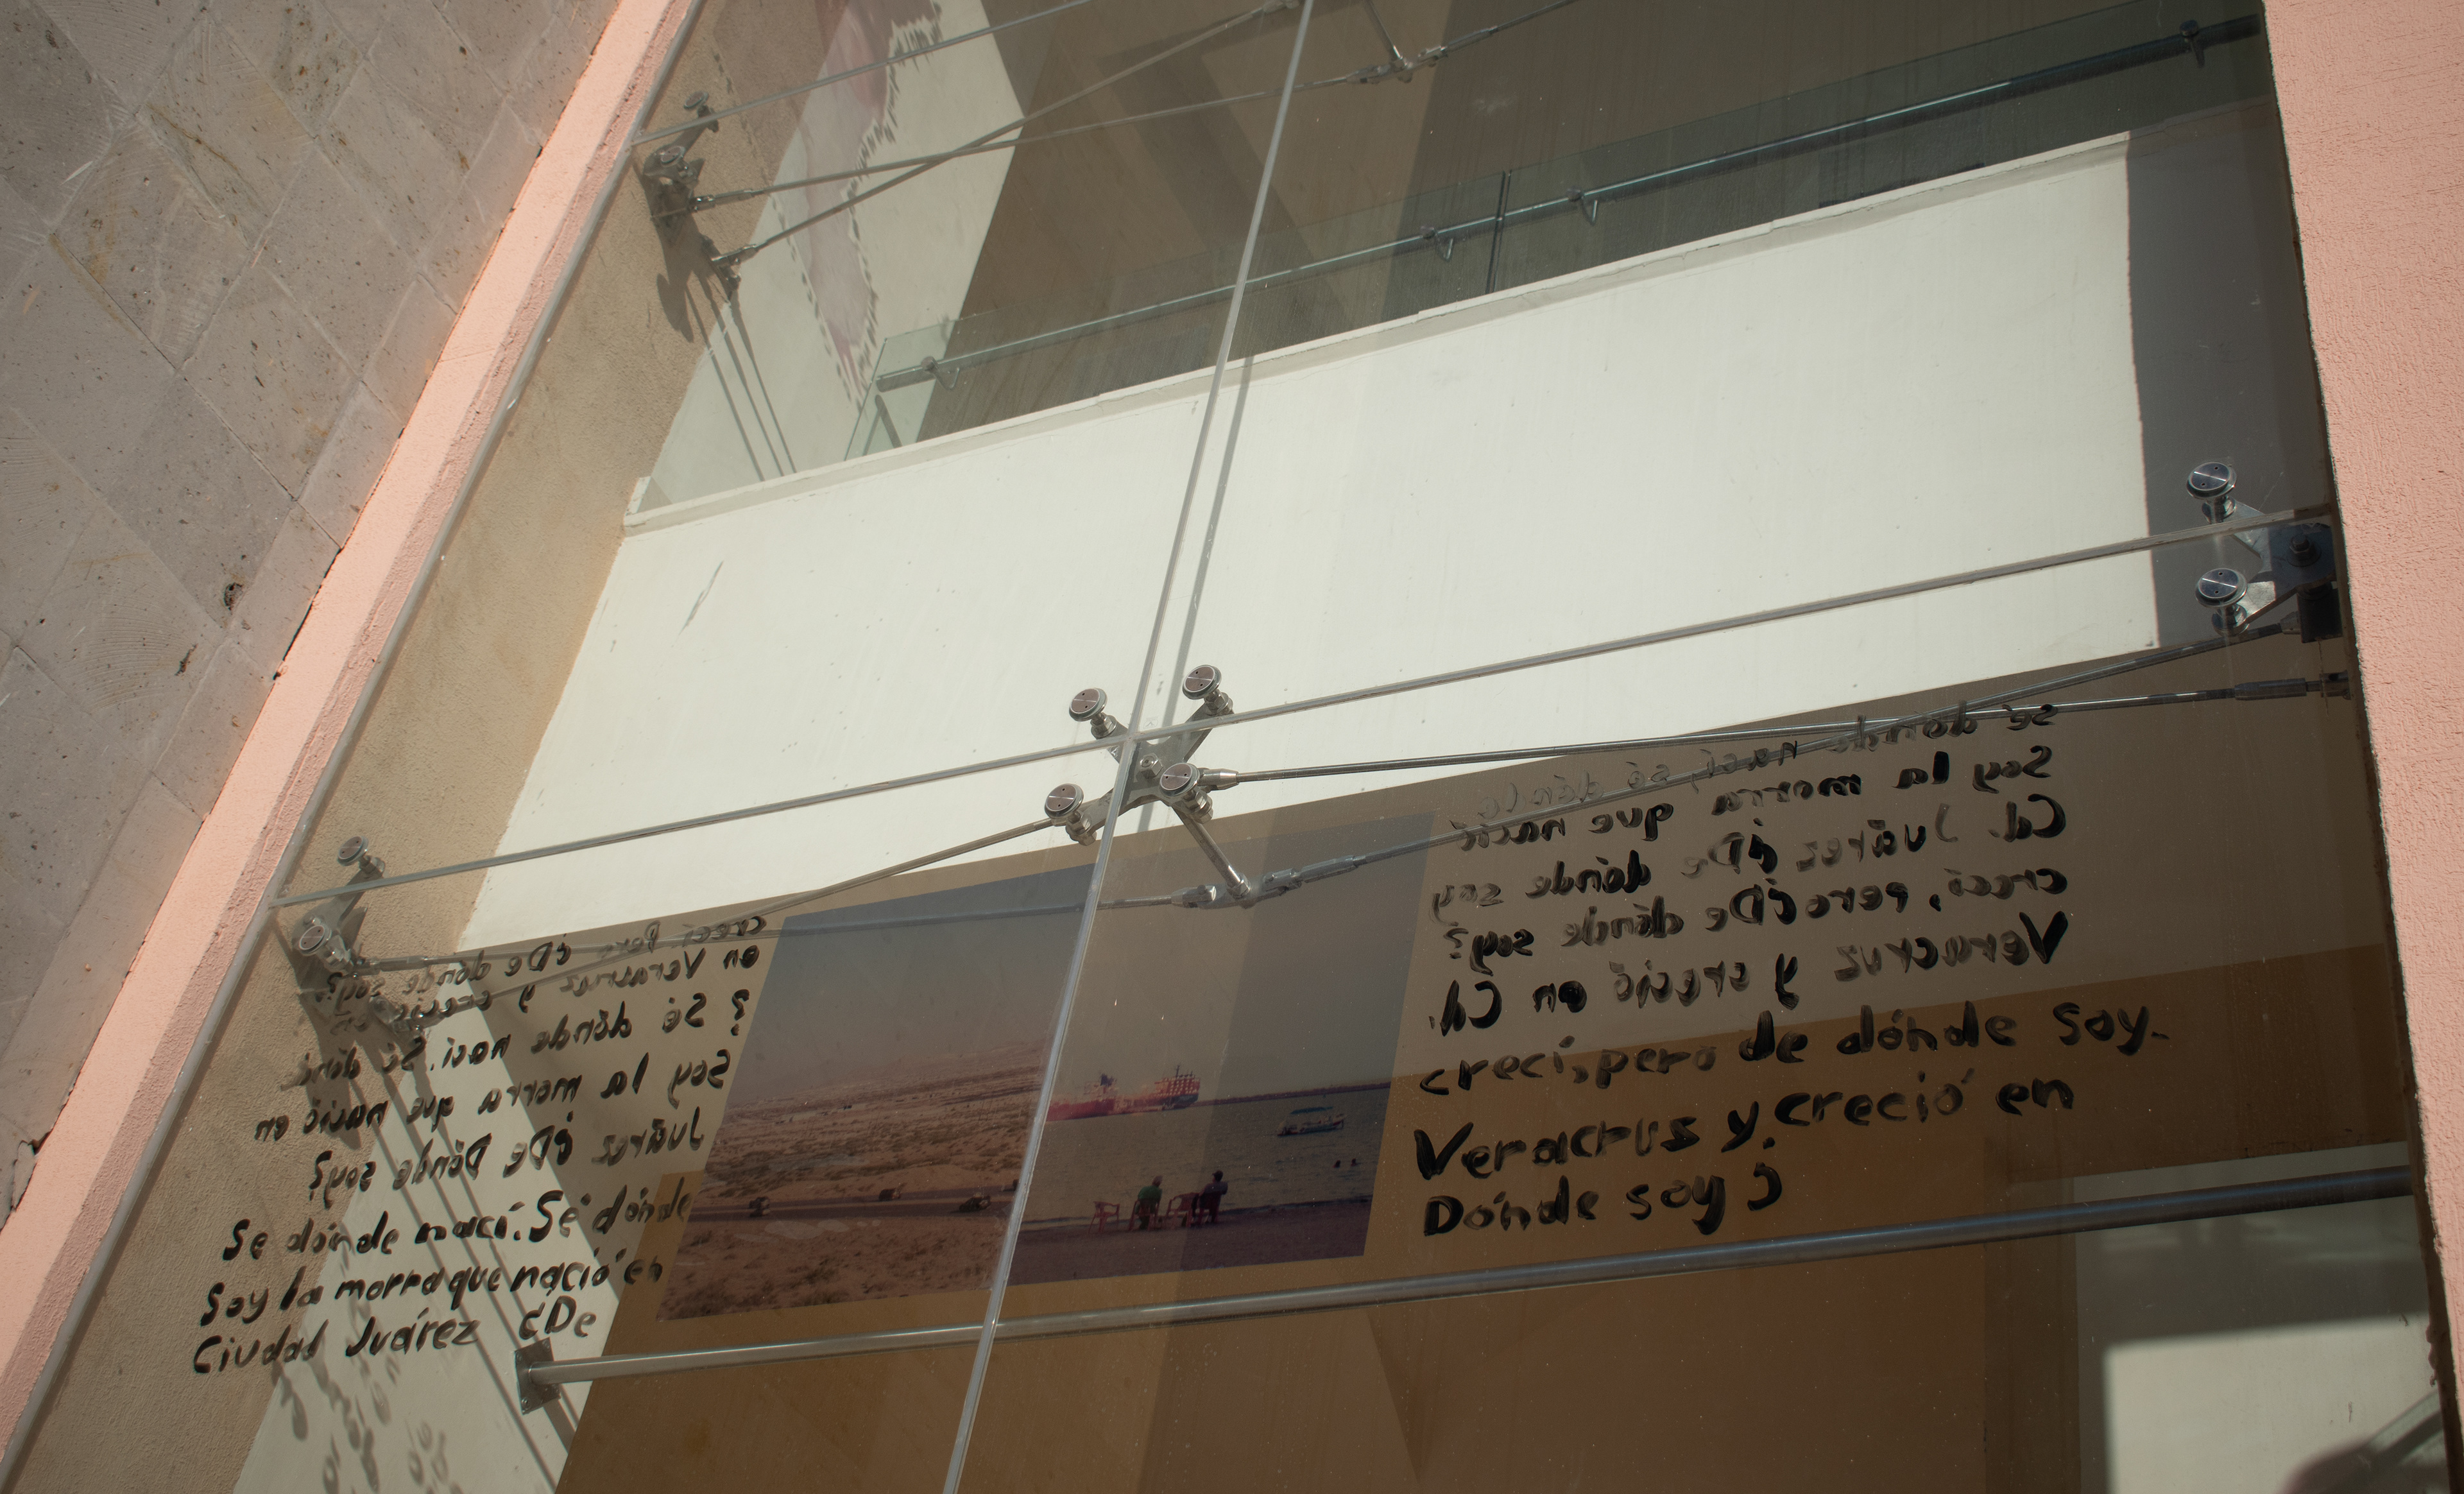 creci pero ¿De dónde soy?
en Veracruz y creció en
? Sé dónde naci. Sé dónd
Soy la morra que nació en
Juárez ¿De Dónde soy?
Se dónde nací. Sé dónde
Soy la morra que nació en
Ciudad Juárez ¿De
sé donde nasí, sé dón
Soy la morra que nació
Cd. Juárez ¿De dónde soy
creci, pero ¿De dónde soy?
Veracruz y creció en Cd.
crecí, pero de dónde soy.
Veracrus y creció en
Dónde soy ?